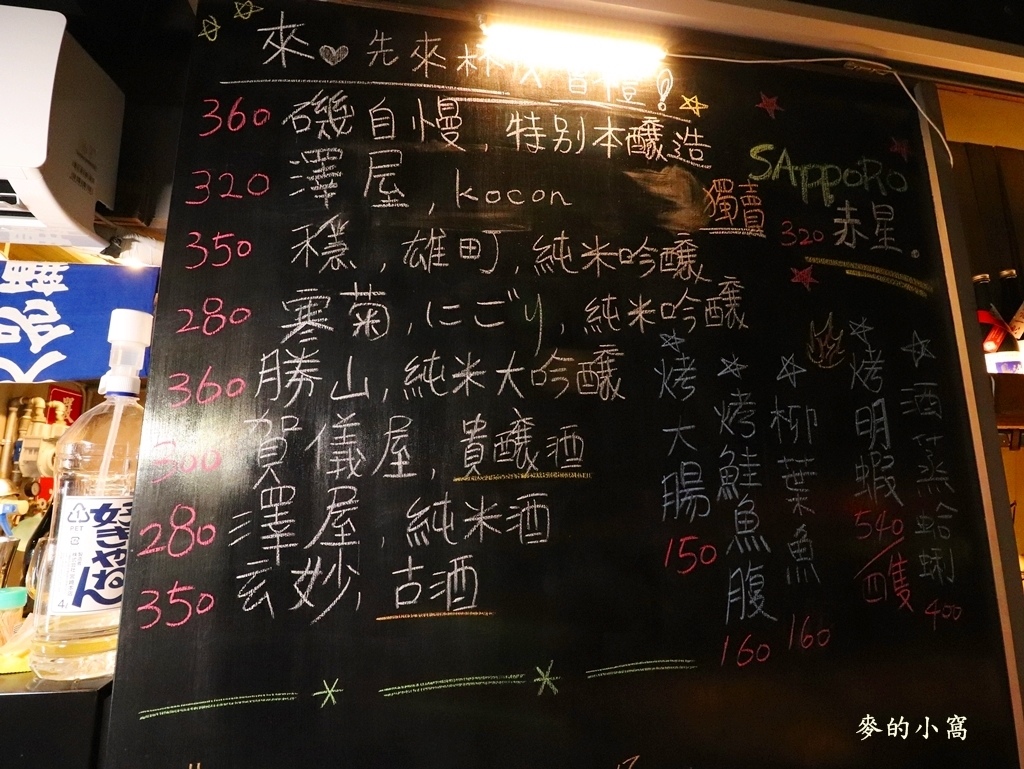 來♥先來杯
360 磯自慢,特別本釀造
320 澤屋,kocon
350 穩,雄町,純米吟釀
280 寒菊,にごり,純米吟釀
360 勝山,純米大吟釀
300 賀儀屋,貴釀酒
280 澤屋,純米酒
350 玄妙,古酒
SAppoRo
獨賣
320 赤星。
烤大腸 150
烤鮭魚腹 160
柳葉魚 160
烤明蝦 540/四隻
酒蒸蛤蜊 400
好きやねん
PET
4ℓ
麥的小窩